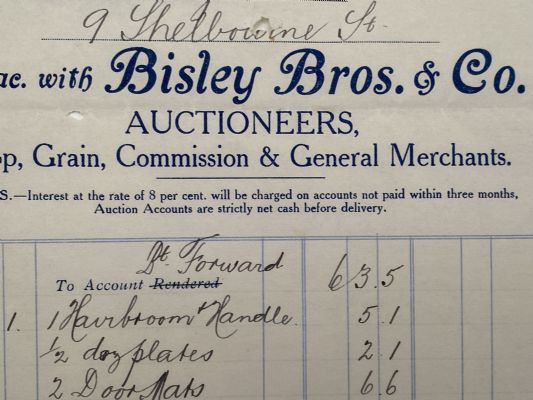 9 Shelbourne St.
ac. with Bisley Bros. & Co.
AUCTIONEERS,
op, Grain, Commission & General Merchants.
S.—Interest at the rate of 8 per cent. will be charged on accounts not paid within three months,
Auction Accounts are strictly net cash before delivery.
Dt. Forward
To Account Rendered 6 3.5
1. 1 Hairbroom & Handle. 5.1
1/2 doz plates 2.1
2 Door Mats 6.6